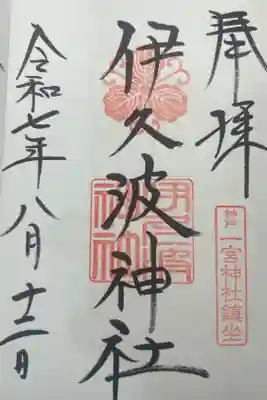 奉拝
神戸一宮神社鎮坐
伊久波神社
令和七年八月十二日